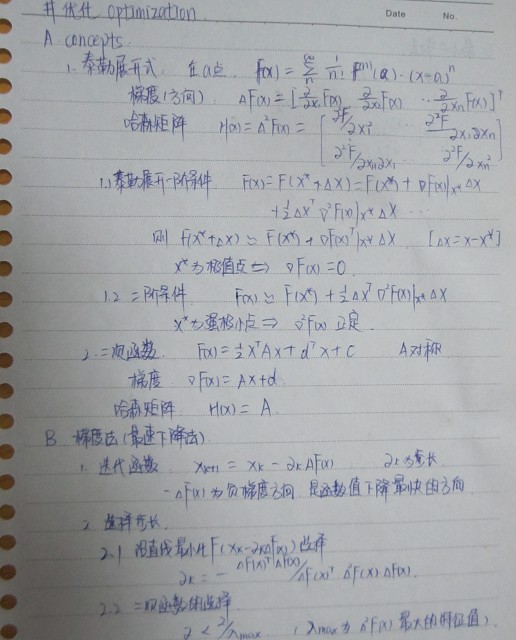 # 优化 optimization
Date No.
A. concepts.
1. 泰勒展开式 在a点 F(x) = Σ_n^∞ 1/n! F^(n)(a)·(x-a)^n
梯度(方向) ΔF(x) = [∂/∂x₁F(x) ∂/∂x₂F(x) ··· ∂/∂xₙF(x)]^T
哈森矩阵 H(x) = Δ²F(x) = [∂²F/∂x₁² ∂²F/∂x₁∂xₙ
∂²F/∂xₙ∂x₁ ∂²F/∂xₙ²]
1.1 泰勒展开一阶条件 F(x) = F(X*+ΔX) = F(X*) + ∇F(x)|x* ΔX
+½ΔX^T ∇²F(x)|x* ΔX ···
则 F(X*+ΔX) ≃ F(X*) + ∇F(x)^T|x* ΔX [ΔX=X-X*]
X*为极值点 ⟺ ∇F(x)=0.
1.2 二阶条件 F(x) ≃ F(X*) + ½ΔX^T ∇²F(x)|x* ΔX
X*为强极小点 ⟹ ∇²F(x) 正定
2. 二次函数 F(x) = ½X^TAX + d^TX + C A对称
梯度 ∇F(x) = AX+d
哈森矩阵 H(x) = A.
B 梯度法(最速下降法)
1. 迭代函数 X_{k+1} = X_k - ∂_kΔF(x) ∂_k为步长
-ΔF(x)为负梯度方向 是函数值下降最快的方向
2. 选择步长
2.1 沿直线最小化 F(X_k-∂_kΔF(x)) 选择
∂_k = - ΔF(x)^TΔF(x)/ΔF(x)^T Δ²F(x) ΔF(x)
2.2 二次函数的选择
∂ < 2/λmax (λmax为Δ²F(x)最大的特征值)